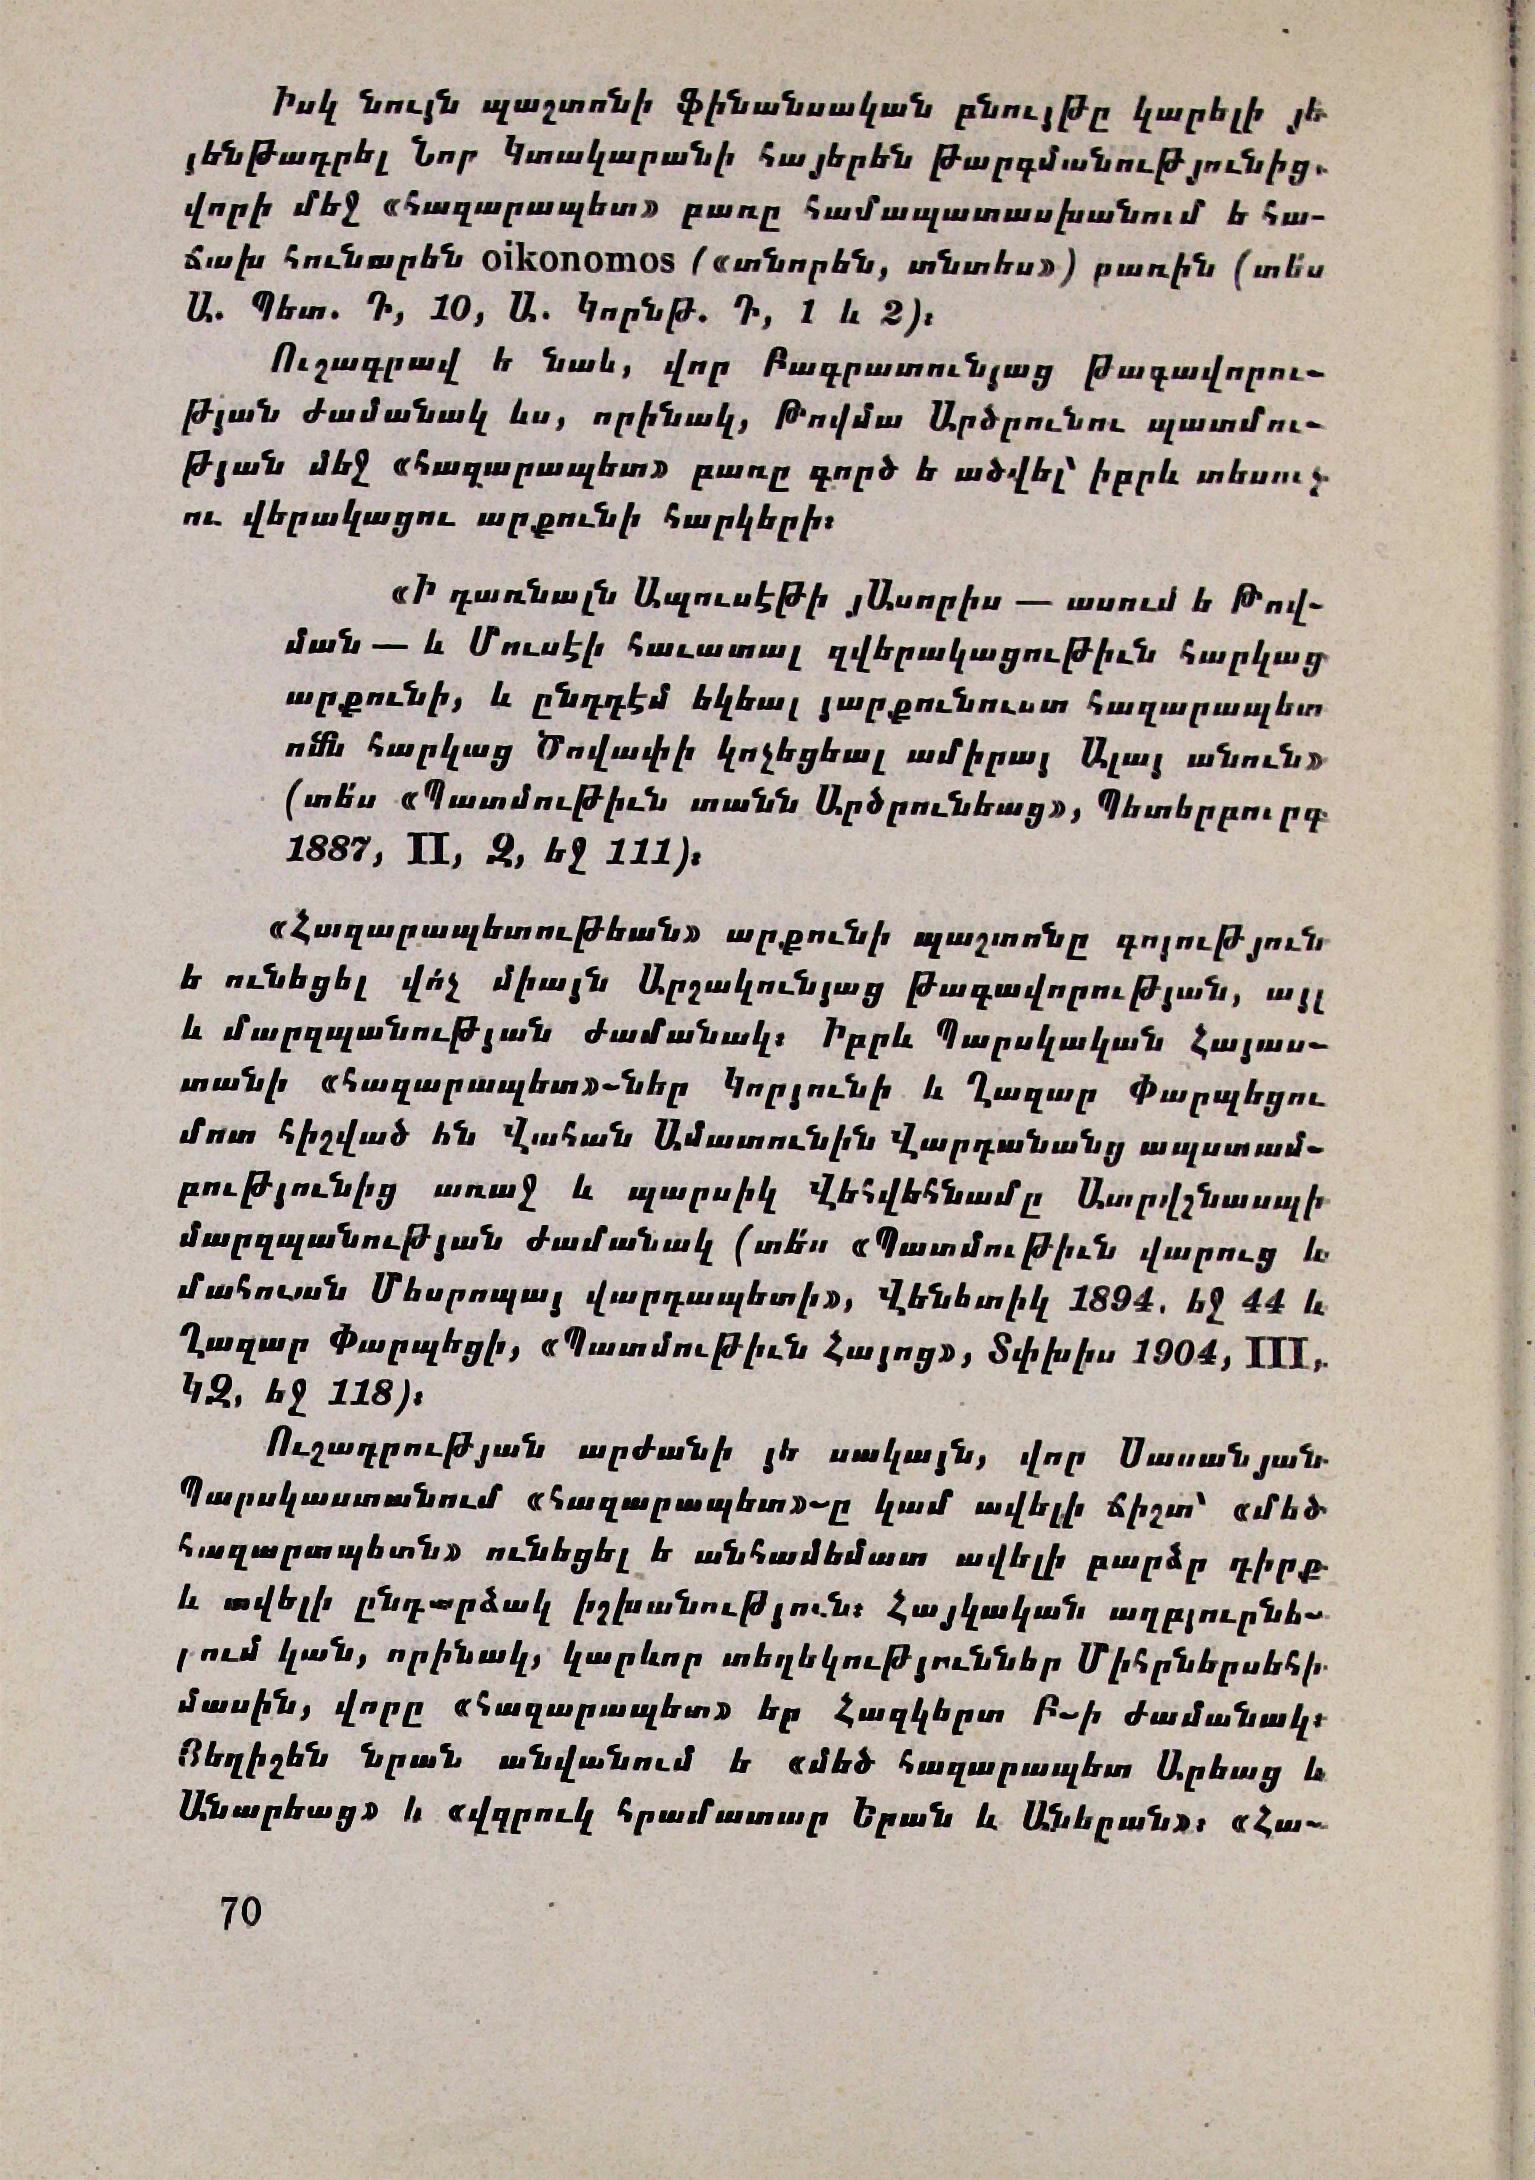 Իսկ նույն պաշտոնի ֆինանսական բնույթը կարելի յե
յենթադրել Նոր Կտակարանի հայերեն թարգմանությունից.
վորի մեջ «հազարապետ» բառը համապատասխանում ե հա-
ճախ հունարեն oikonomos («տնորեն, տնտես») բառին (տե՛ս
Ա. Պետ. Դ, 10, Ա. Կորնթ. Դ, 1 և 2)։
Ուշագրավ ե նաև, վոր Բագրատունյաց թագավորու-
թյան ժամանակ ևս, որինակ, Թովմա Արծրունու պատմու-
թյան մեջ «հազարապետ» բառը գործ ե ածվել՝ իբրև տեսուչ
ու վերակացու արքունի հարկերի։
«Ի դառնալն Ապուսէթի յԱսորիս — ասում ե Թով-
ման — և Մուսէի հաւատալ զվերակացութիւն հարկաց
արքունի, և ընդդէմ եկեալ յարքունուստ հազարապետ
ոմն հարկաց Ծովափի կոչեցեալ ամիրայ Ալայ անուն»
(տե՛ս «Պատմութիւն տանն Արծրունեաց», Պետերբուրգ
1887, II, Զ, եջ 111)։
«Հազարապետութեան» արքունի պաշտոնը գոյություն
ե ունեցել վո՛չ միայն Արշակունյաց թագավորության, այլ
և մարզպանության ժամանակ։ Իբրև Պարսկական Հայաս-
տանի «հազարապետ»-ներ Կորյունի և Ղազար Փարպեցու
մոտ հիշված են Վահան Ամատունին Վարդանանց ապստամ-
բությունից առաջ և պարսիկ Վեհվեհնամը Ատրվշնասպի
մարզպանության ժամանակ (տե՛ս «Պատմութիւն վարուց և
մահուան Մեսրոպայ վարդապետի», Վենետիկ 1894. եջ 44 և
Ղազար Փարպեցի, «Պատմութիւն Հայոց», Տփխիս 1904, III,
ԿԶ, եջ 118)։
Ուշադրության արժանի յե սակայն, վոր Սասանյան
Պարսկաստանում «հազարապետ»-ը կամ ավելի ճիշտ՝ «մեծ
հազարապետն» ունեցել ե անհամեմատ ավելի բարձր դիրք
և ավելի ընդարձակ իշխանություն։ Հայկական աղբյուրնե-
րում կան, որինակ, կարևոր տեղեկություններ Միհրներսեհի
մասին, վորը «հազարապետ» եր Հազկերտ Բ-ի ժամանակ։
Յեղիշեն նրան անվանում ե «մեծ հազարապետ Արեաց և
Անարեաց» և «վզրուկ հրամատար Երան և Աներան»։ «Հա-
70